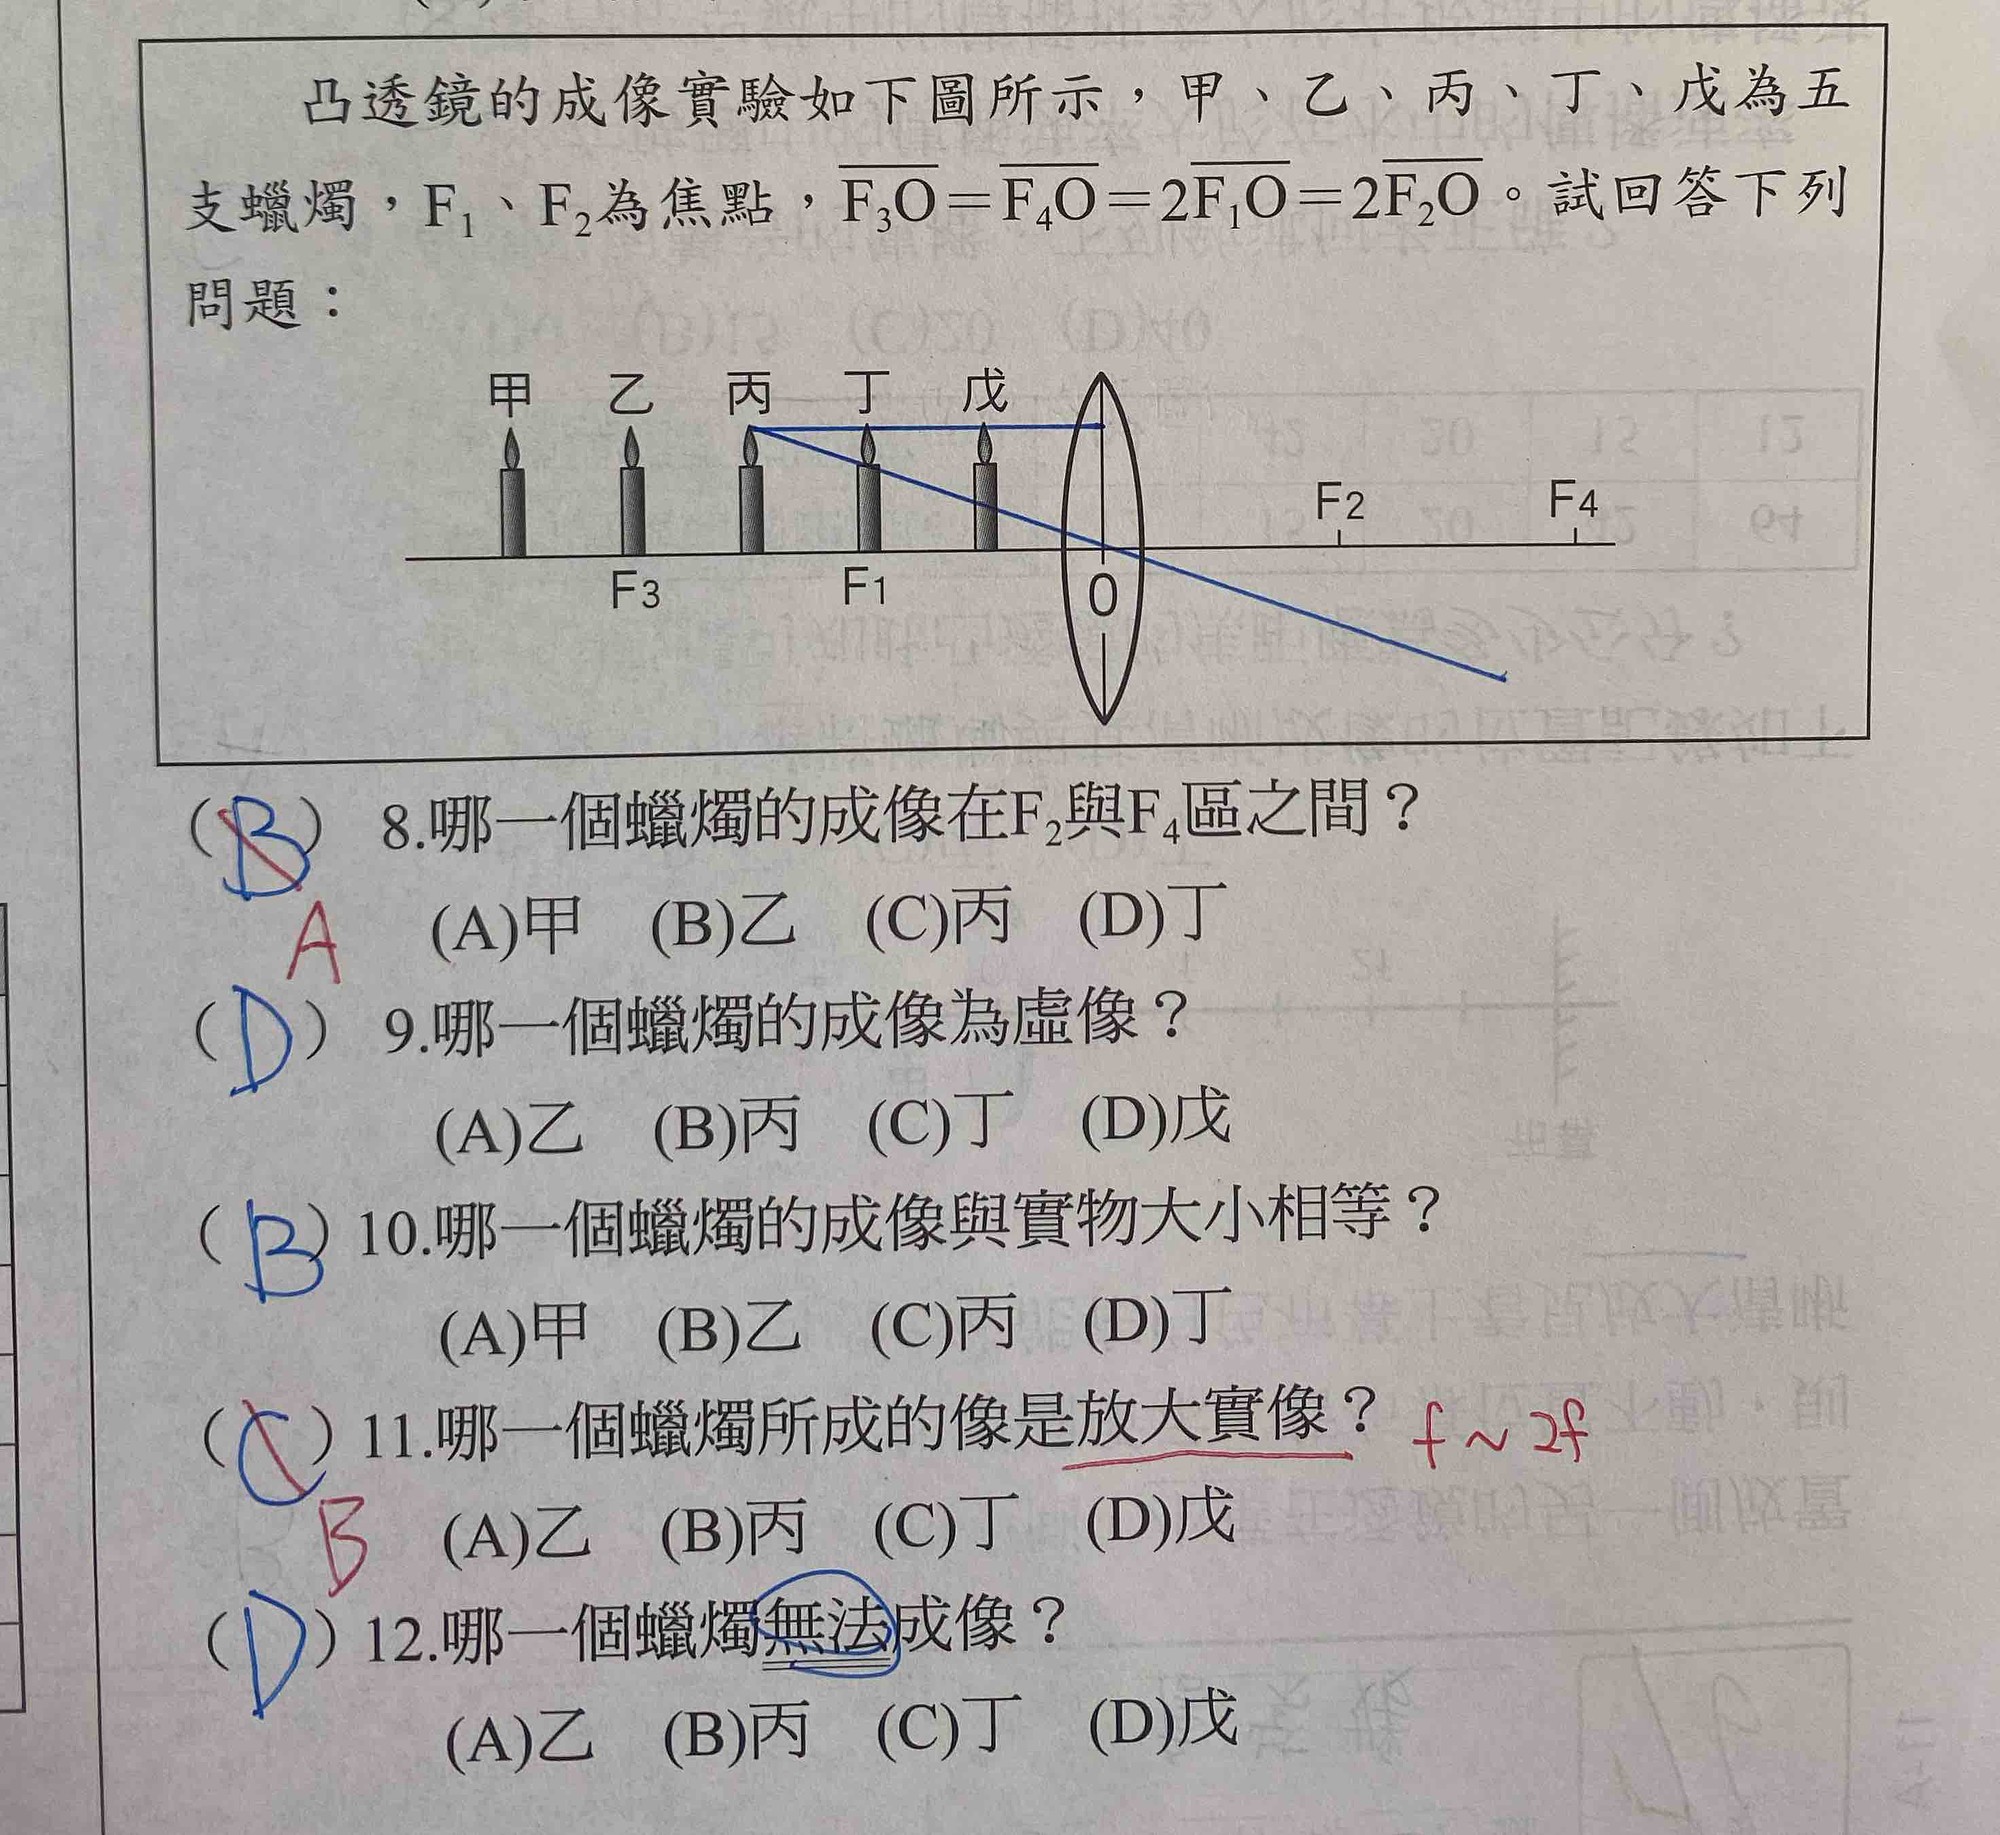 凸透鏡的成像實驗如下圖所示，甲、乙、丙、丁、戊為五
支蠟燭，F₁、F₂為焦點，F₃O＝F₄O＝2F₁O＝2F₂O。試回答下列
問題：
甲 乙 丙 丁 戊
F2 F4
F3 F1 O
(B) 8.哪一個蠟燭的成像在F₂與F₄區之間？
A (A)甲 (B)乙 (C)丙 (D)丁
(D) 9.哪一個蠟燭的成像為虛像？
(A)乙 (B)丙 (C)丁 (D)戊
(B) 10.哪一個蠟燭的成像與實物大小相等？
(A)甲 (B)乙 (C)丙 (D)丁
(C) 11.哪一個蠟燭所成的像是放大實像？ f~2f
B (A)乙 (B)丙 (C)丁 (D)戊
(D) 12.哪一個蠟燭無法成像？
(A)乙 (B)丙 (C)丁 (D)戊